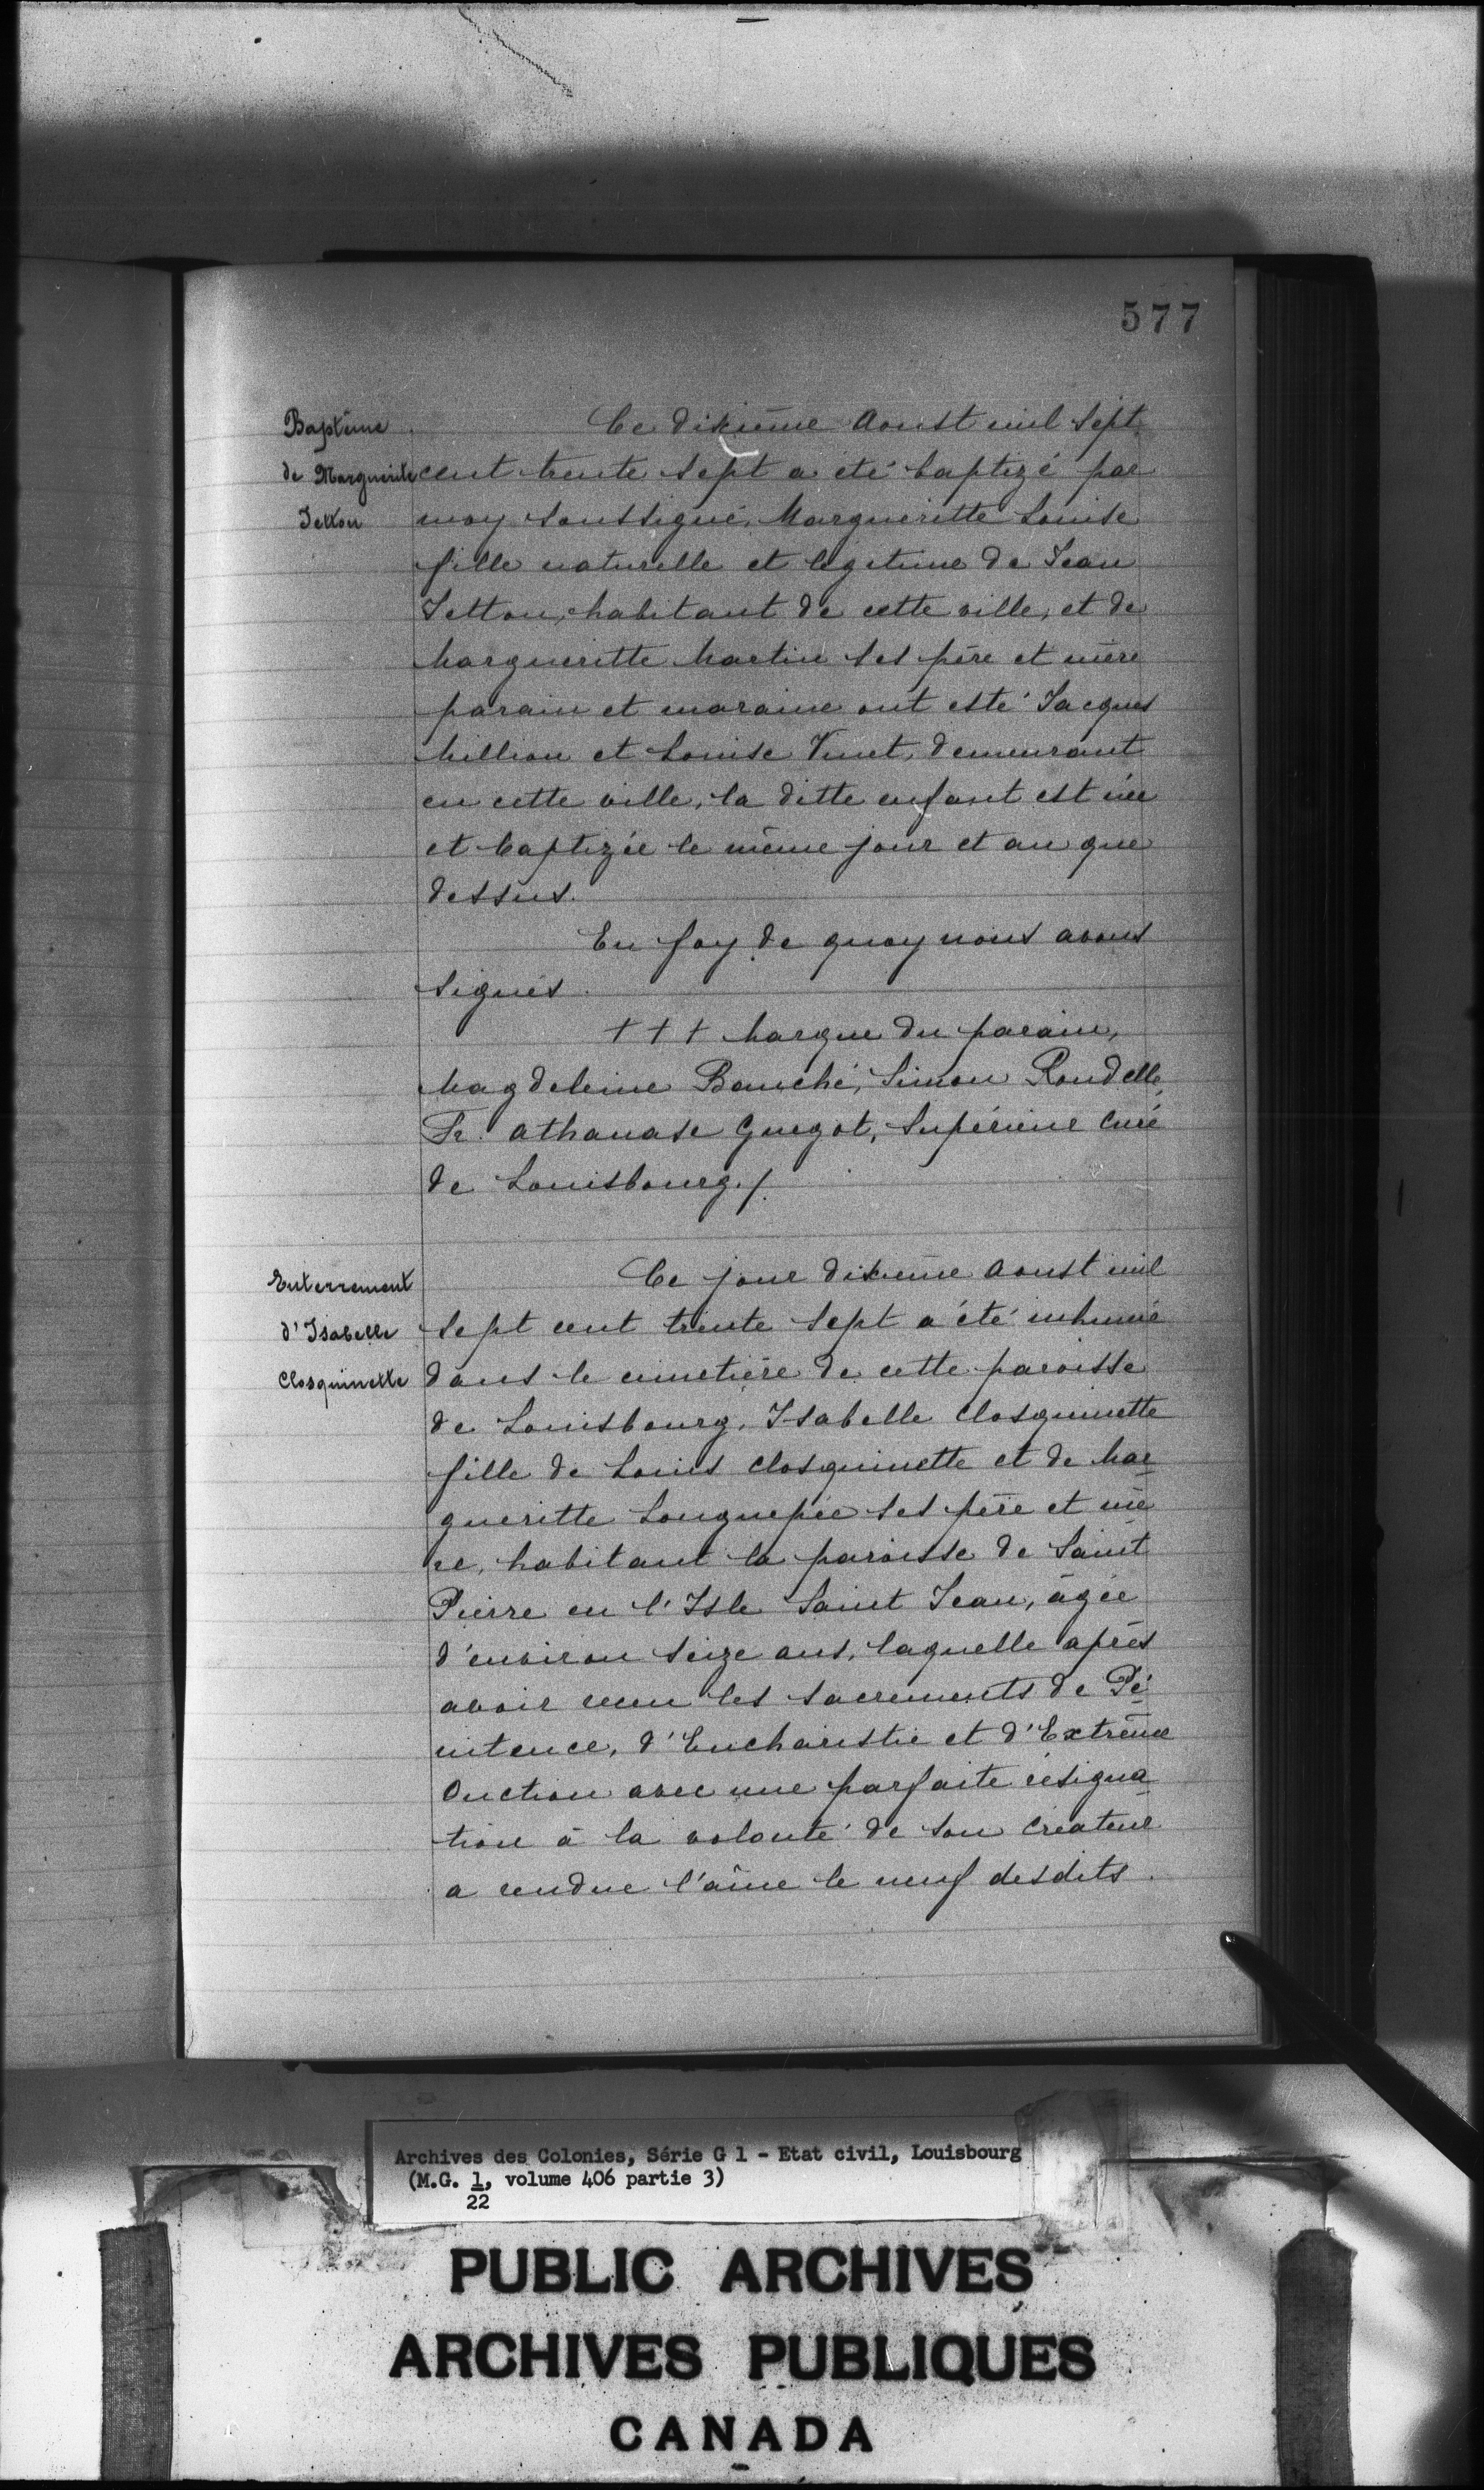 577
Baptême
de Marguerite
Jetton
Ce dixième Aoust mil sept
cent trente sept a été baptizé par
moy soussigné, Margueritte Louise
fille naturelle et legitime de Jean
Jetton, habitant de cette ville, et de
Margueritte Martin ses père et mère
parain et maraine ont esté Jacques
Million et Louise Vinet, demeurant
en cette ville, la ditte enfant est née
et baptizée le même jour et an que
dessus.
En foy de quoy nous avons
signés.
+ + + Marque du parain,
Magdeleine Bauché, Simon Rondelle
Fr. Athanase Guegot, Supérieur Curé
de Louisbourg./.
Enterrement
d'Isabelle
Closquinette
Ce jour dixième Aoust mil
sept cent trente sept a été inhumé
dans le cimetière de cette paroisse
de Louisbourg, Isabelle Closquinette
fille de Louis Closquinette et de Mar
gueritte Longuepée ses père et mè
re, habitant la paroisse de Saint
Pierre en l'Isle Saint Jean, âgée
d'environ seize ans, laquelle après
avoir receu les sacrements de Pé
nitence, d'Eucharistie et d'Extrême
Onction avec une parfaite résigna
tion à la volonté de son Créateur
a rendue l'âme le neuf desdits.
Archives des Colonies, Série G 1 - Etat civil, Louisbourg
(M.G. 1, volume 406 partie 3)
22
PUBLIC ARCHIVES
ARCHIVES PUBLIQUES
CANADA